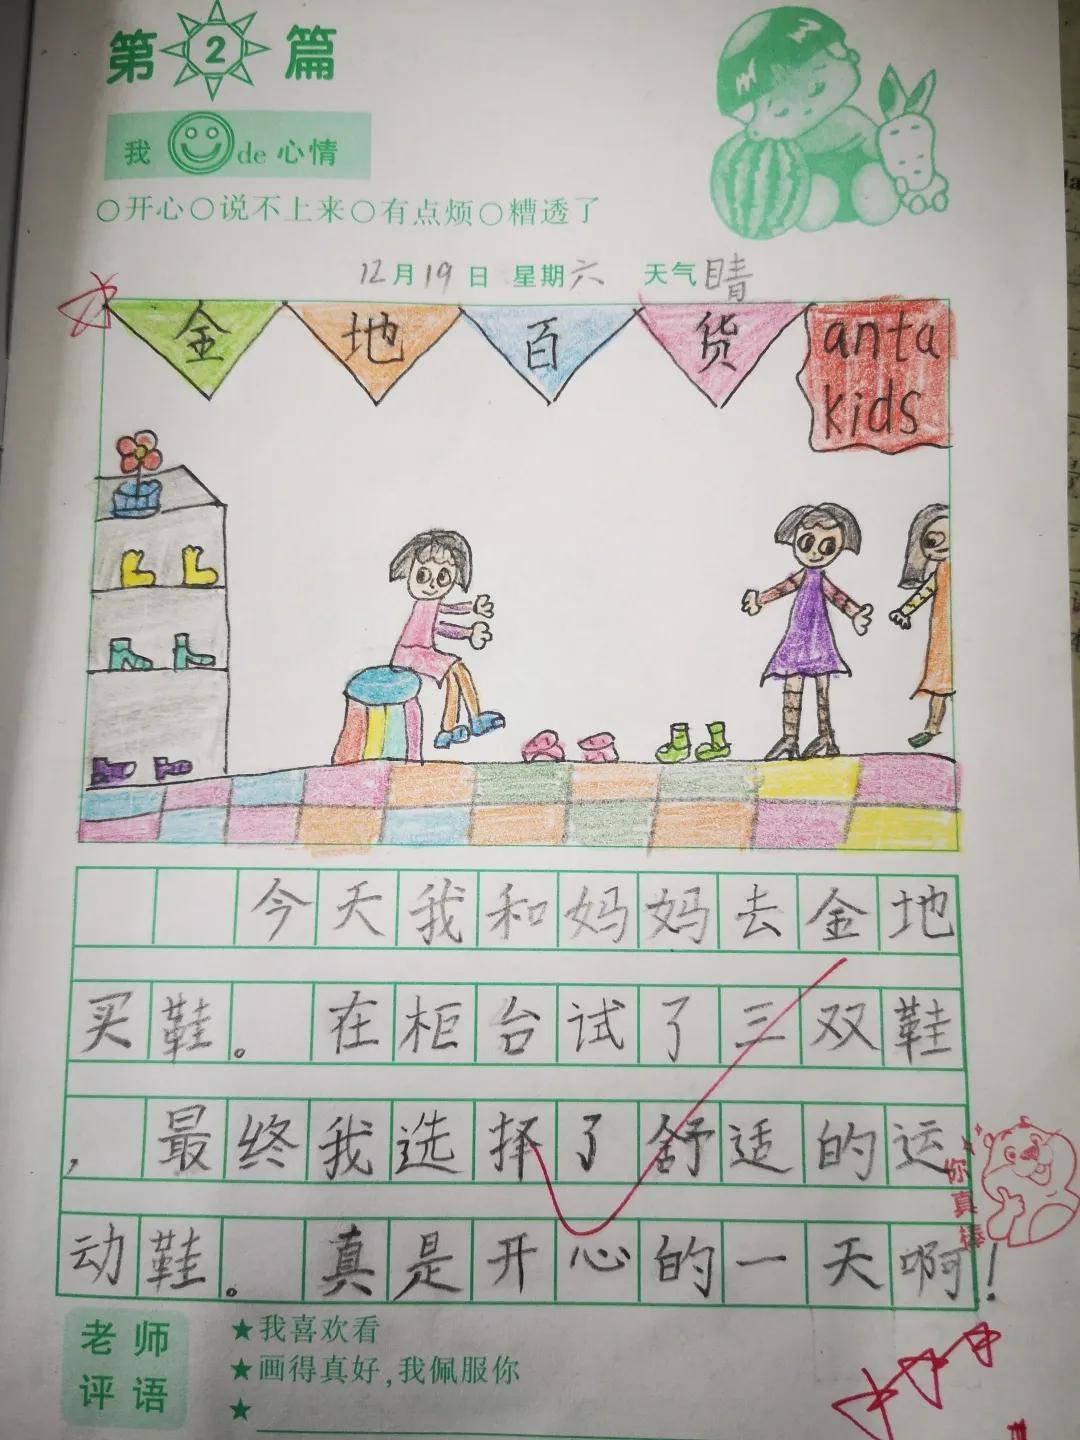 第2篇
我de心情
○开心○说不上来○有点烦○糟透了
12月19日 星期六 天气晴
金地百货 anta
kids
今天我和妈妈去金地
买鞋。在柜台试了三双鞋
,最终我选择了舒适的运
动鞋。真是开心的一天啊!
你真棒
老师
评语
★我喜欢看
★画得真好,我佩服你
★